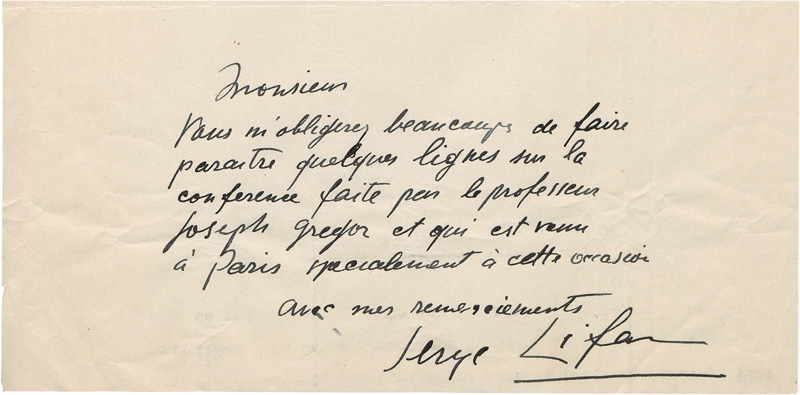 Monsieur
Vous m'obligerez beaucoups de faire
paraitre quelques lignes sur la
conference faite par le professeur
Joseph Gregor et qui est venu
à Paris specialement à cette occasion
avec mes remerciements
Serge Lifar